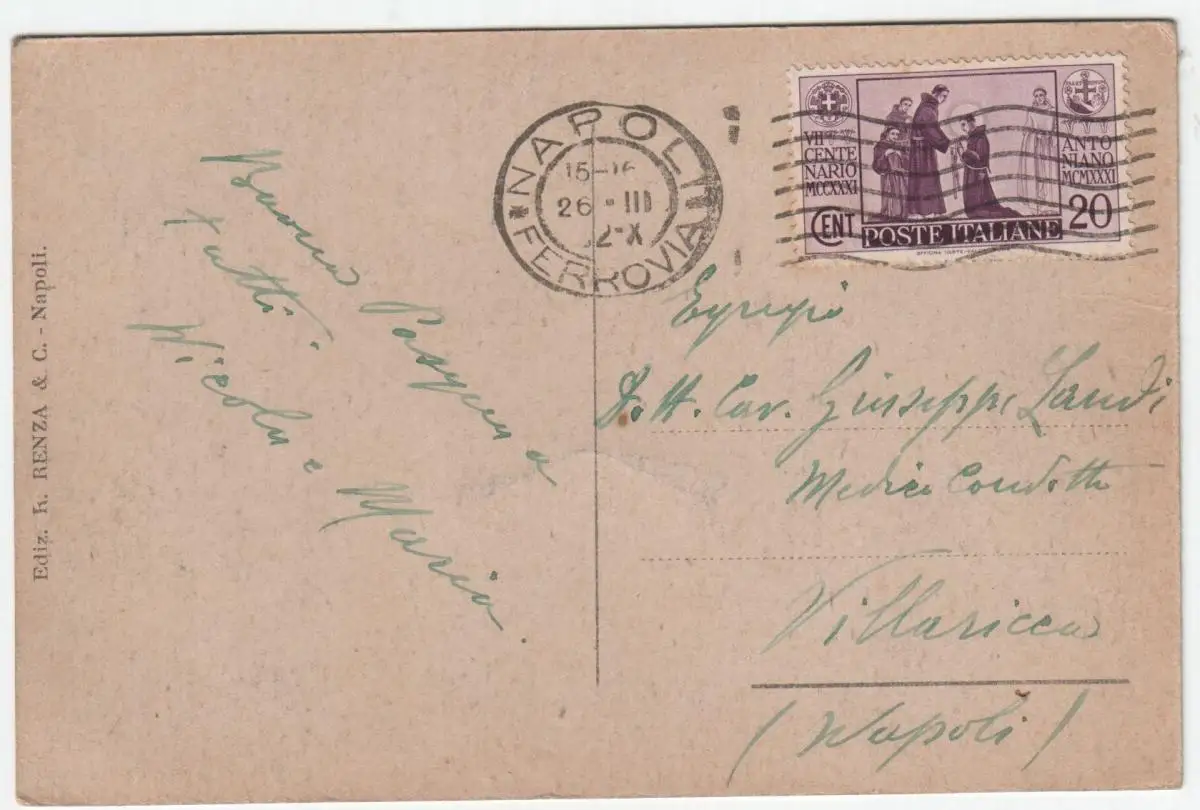 Ediz. R. RENZA & C. - Napoli.
Buona Pasqua a
tutti.
Nicola e Maria.
NAPOLI
FERROVIA
26 - III
2-X
VII
CENTE
NARIO
MCCXXXI
ANTO
NIANO
MCMXXXI
CENT 20
POSTE ITALIANE
Egregio
Dott. Cav. Giuseppe Landi
Medico Condotto
Villaricca
(Napoli)